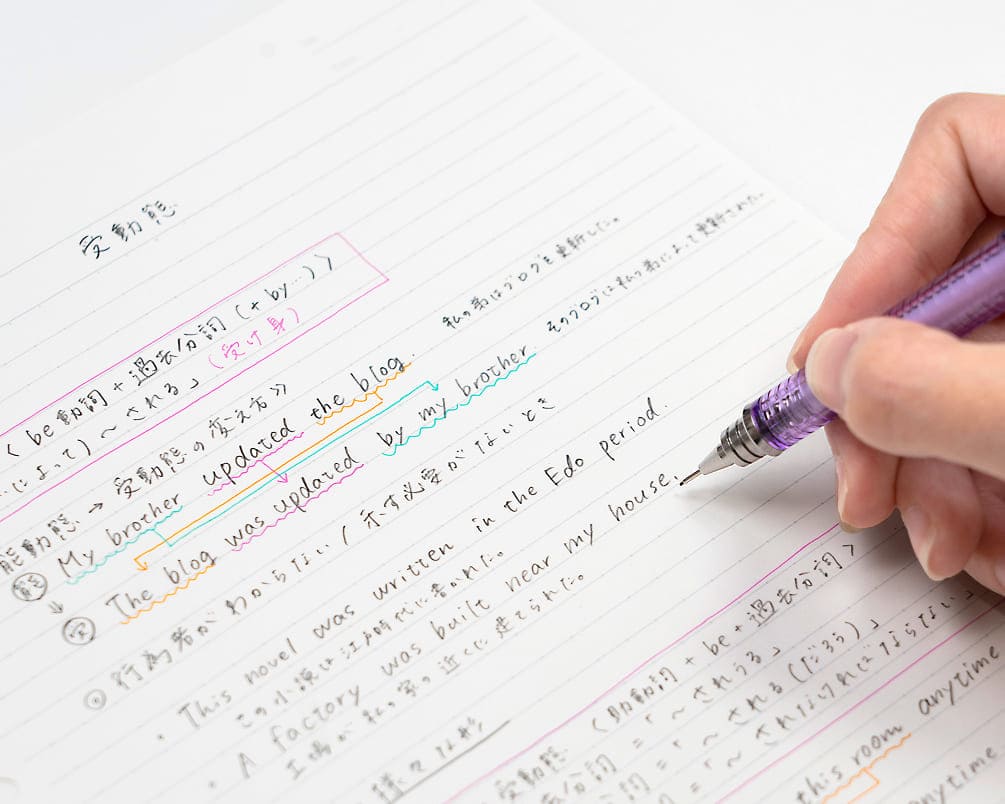 受動態
〈be動詞 + 過去分詞 (+ by…)〉
によって)〜される」(受け身)
能動態 → 受動態の変え方》
私の弟はブログを更新した。
能 My brother updated the blog.
⇓
そのブログは私の弟によって更新された。
受 The blog was updated by my brother.
◎行為者がわからない (示す必要がないとき
・This novel was written in the Edo period.
この小説は江戸時代に書かれた。
・A factory was built near my house.
工場が私の家の近くに建てられた。
様々な形
受動態 〈助動詞 + be + 過去分詞〉
分詞 = 「〜されうる」
分詞 = 「〜される(だろう)」
= 「〜されなければならない」
this room anytime
anytime